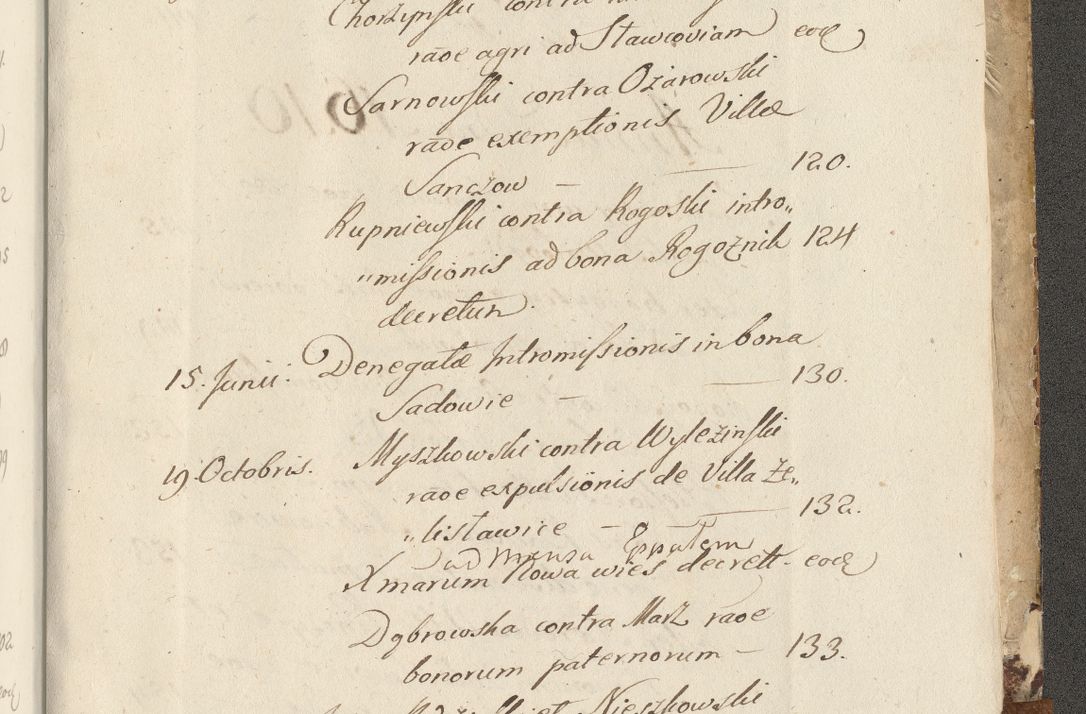 Chorzynski contra
raõe agri ad Stawcoviam eod
Sarnowski contra Ożarowski
raõe exemptionis Villæ
Sanczow — 120.
Rupniewski contra Rogoski intro„
„missionis ad bona Rogoznik 124
decretum.
15. Junii. Denegatæ Intromissionis in bona
Sadowie — 130.
19. Octobris. Myszkowski contra Wylezinski
raõe expulsionis de Villa Że„
„listawice — 132.
ad Mensa Eppalem
Xmarum Nowa wies decrett. eod
Dąbrowska contra Marz raõe
bonorum paternorum — 133.
Nieszkowski